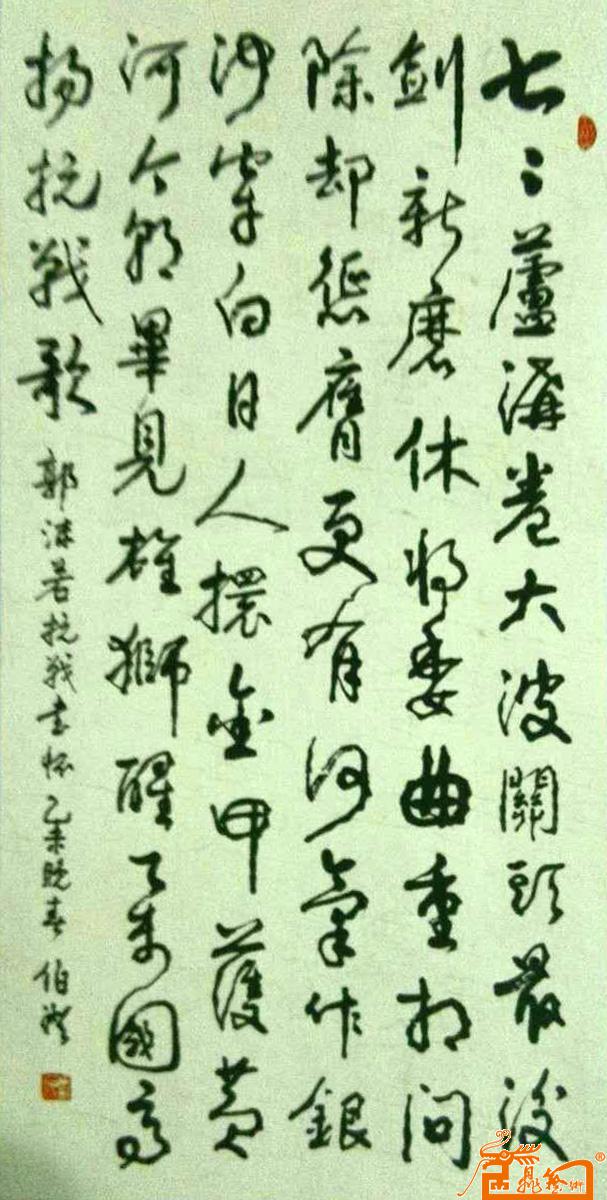 七〻蘆溝卷大波關頭最後
劍新磨休將委曲重相問
除却懲膺更有何氣作銀
牢白日人擐金甲護黃
河今朝畢見雄獅醒萬國高
揚抗戰歌
郭沫若抗戰書懷 乙未晚春 伯